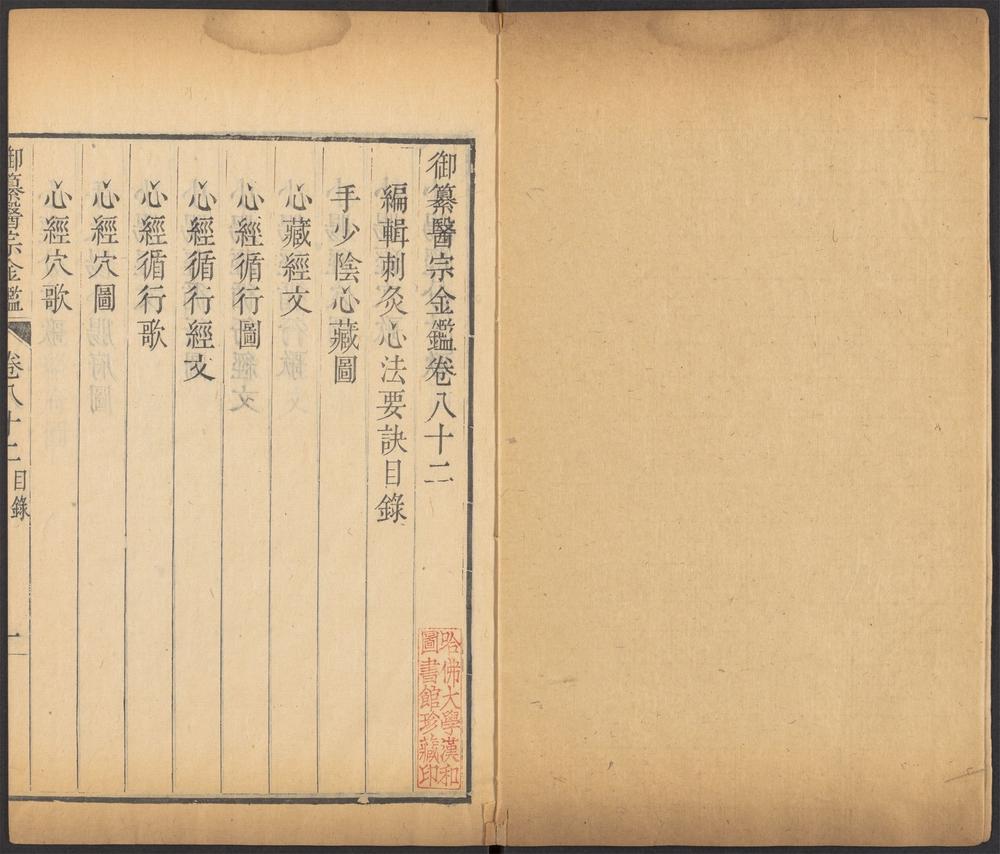 御纂醫宗金鑑卷八十二
編輯刺灸心法要訣目錄
手少陰心藏圖
心藏經文
心經循行圖
心經循行經文
心經循行歌
心經穴圖
心經穴歌
御纂醫宗金鑑
卷八十二
目錄
一
哈佛大學漢和
圖書館珍藏印